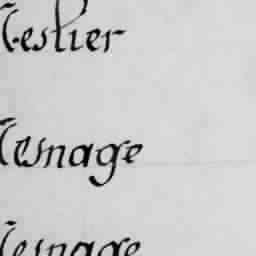 estier
esnage
esnage